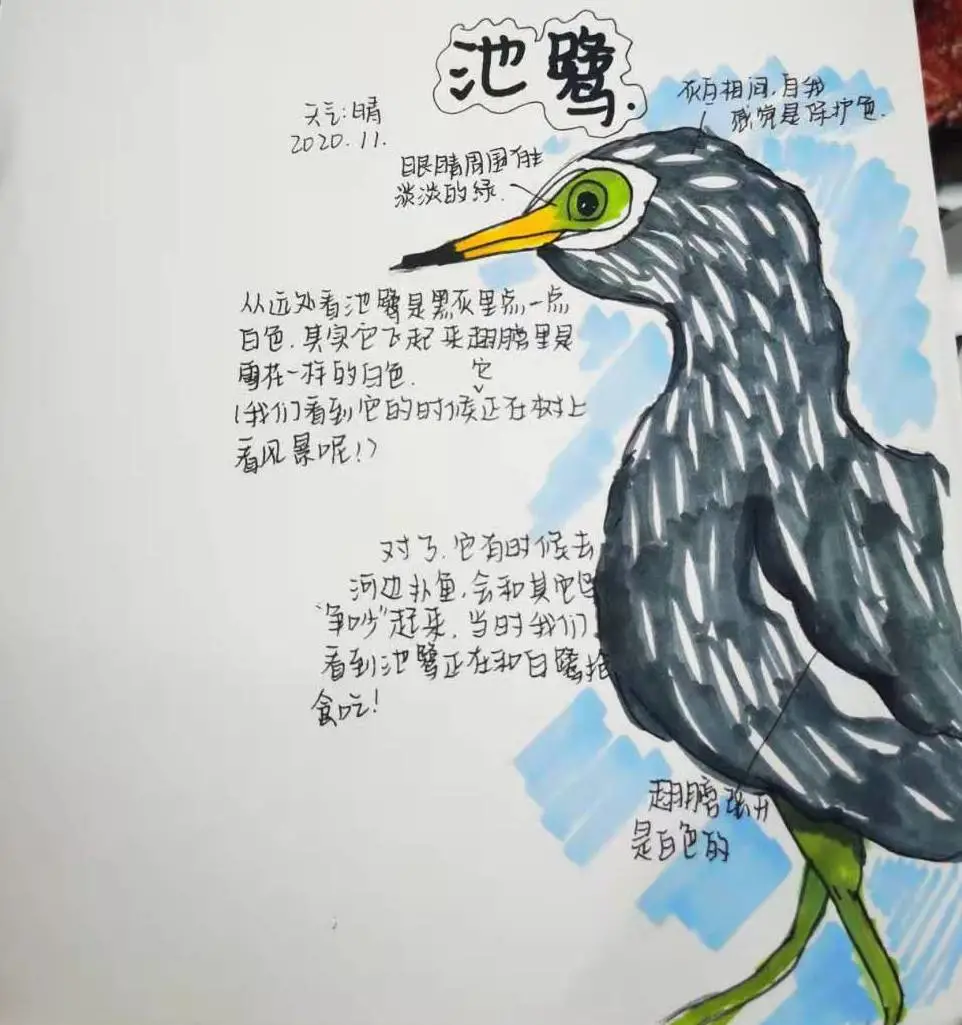 池鹭.
天气:晴
2020.11.
灰白相间,自我
感觉是保护色.
眼睛周围有
淡淡的绿.
从远处看池鹭是黑灰里点一点
白色.其实它飞起来翅膀里是
雪花一样的白色.
(我们看到它的时候它正在树上
看风景呢!)
对了,它有时候去
河边扑鱼,会和其它鸟
"争吵"起来,当时我们
看到池鹭正在和白鹭抢
食吃!
翅膀张开
是白色的